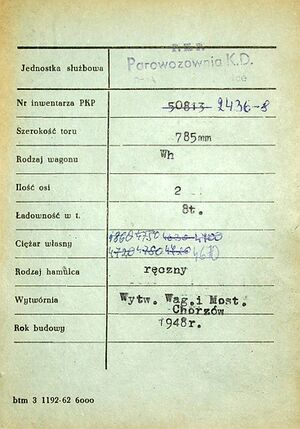 P.K.P.
Jednostka służbowa Parowozownia K.D.
Nr inwentarza PKP 50813 2436-8
Szerokość toru 785mm
Rodzaj wagonu Wh
Ilość osi 2
Ładowność w t. 8t.
4750 4700
Ciężar własny
4720 4670
Rodzaj hamulca ręczny
Wytwórnia Wytw. Wag.i Most.
Chorzów
Rok budowy 1948r.
btm 3 1192-62 6000